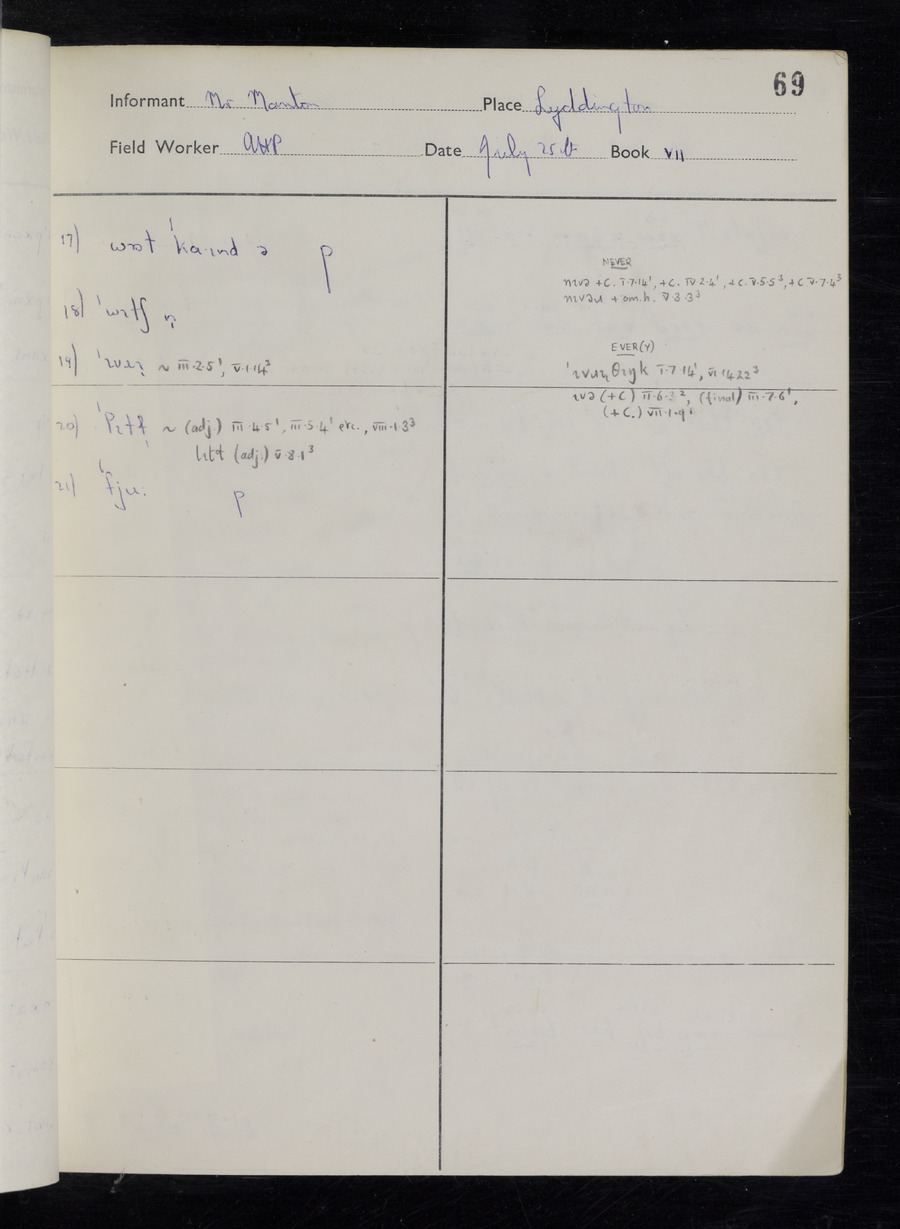 69
Informant Mr Manton Place Lyddington
Field Worker AHP Date July 25th Book VII
17) wɒt ˈkaɪnd ə p
18) ˈwɪtʃ
19) ~ III·2·5¹, V·1·14³
20) ~ (adj) III·4·5¹, III·5·4¹ etc., VIII·1·3³
(adj.) V·8·1³
21) ˈfjuː p
NEVER
nɪvə +C. I·7·14¹, +C. IV·2·4¹, +C. V·5·5³, +C V·7·4³
nɪvəɹ + om.h. V·3·3³
EVER(Y)
I·7·14¹, VI·14·22³
ɪvə (+C) II·6·2², (final) III·7·6¹,
(+C.) VII·1·9¹